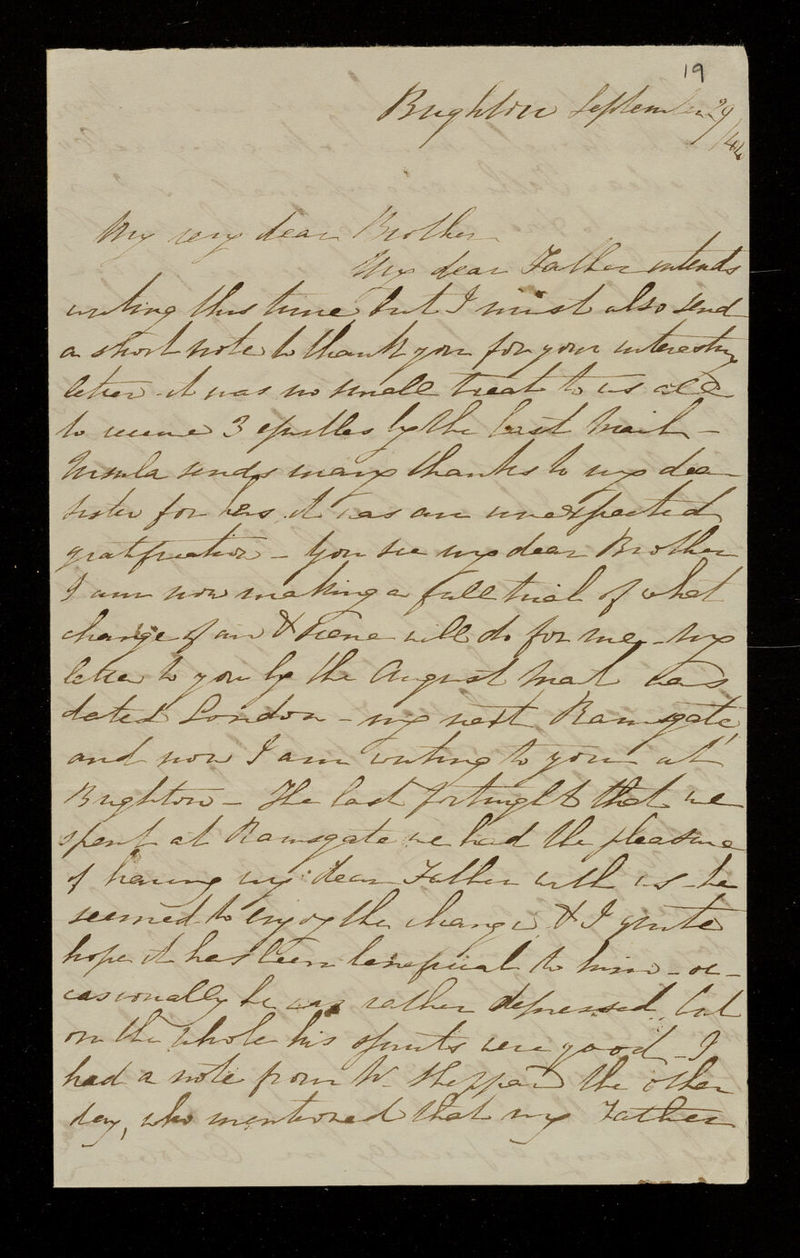 19
Brighton September 29/44
My very dear Brother
My dear Father intends
writing this time, but I must also send
a short note to thank you for your interesting
letter it was no small treat to us all
to receive 3 epistles by the last Mail -
Ursula sends many thanks to my dear
sister for hers, it was an unexpected
gratification - You see my dear Brother
I am now making a full trial of what
change of air & scene will do for me - my
letter to you by the August Mail was
dated London - my next Ramsgate,
and now I am writing to you at
Brighton - The last fortnight that we
spent at Ramsgate we had the pleasure
of having my dear Father with us - he
seemed to enjoy the change, & I quite
hope it has been beneficial to him - oc-
casionally he was rather depressed, but
on the whole his spirits were good - I
had a note from W. Sheppard the other
day, who mentioned that my Father